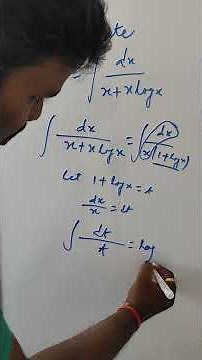 te
∫ dx / x+x log x
∫ dx / x+x log x = ∫ dx / x(1+log x)
Let 1+log x = t
dx / x = dt
∫ dt / t = log